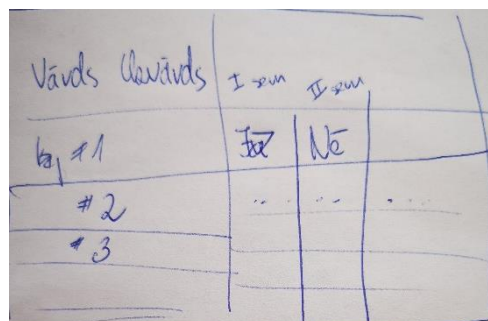 Vārds Uzvārds I sem II sem
#1 Nē
#2 .. .. ...
#3